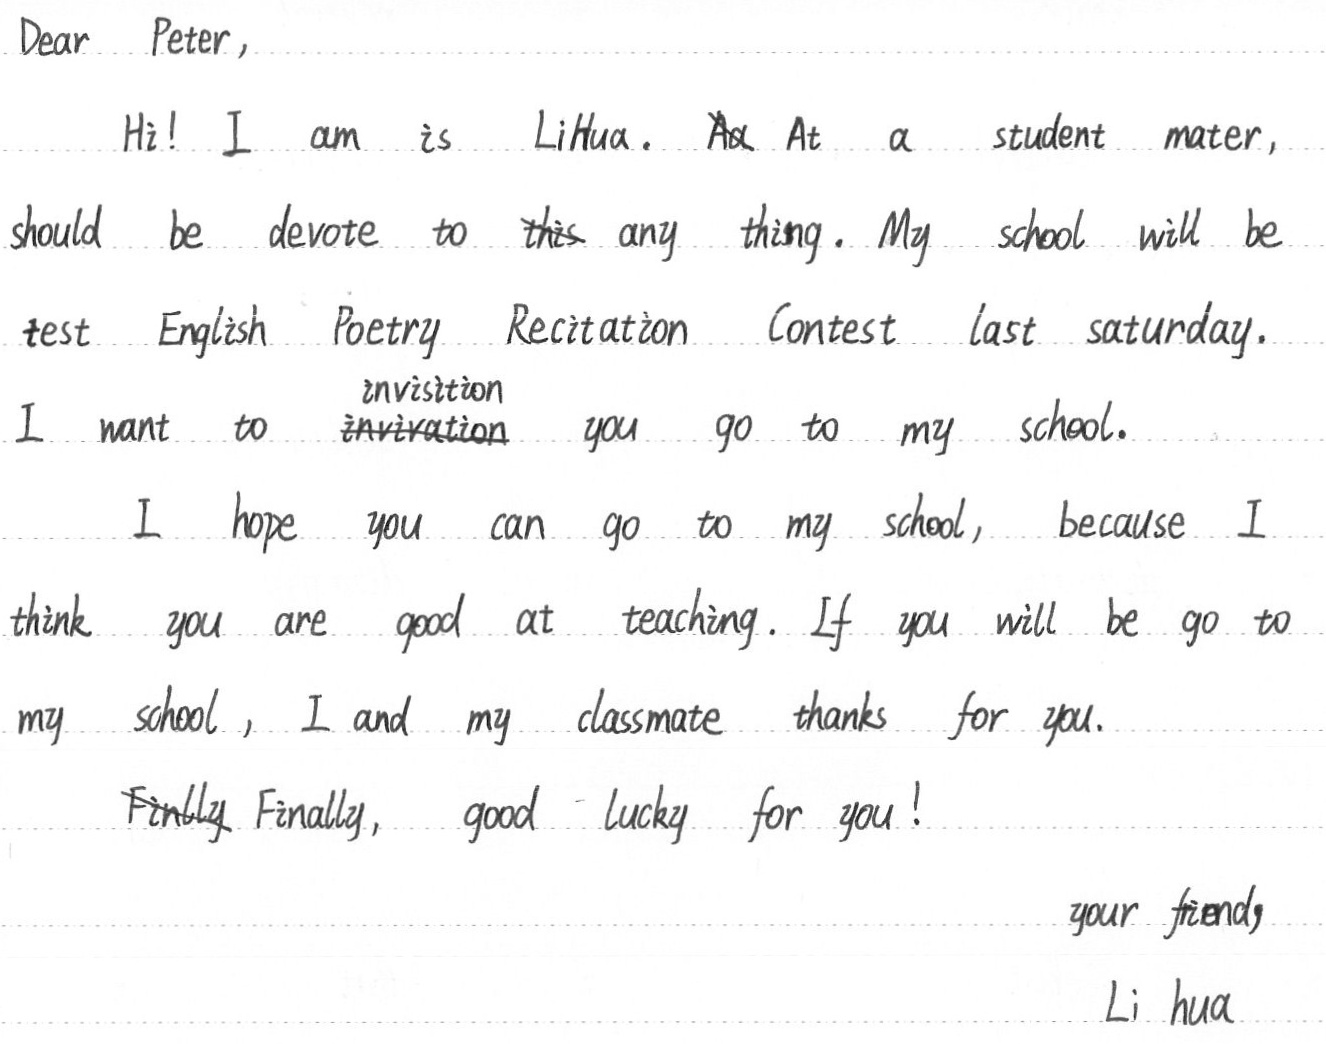 Dear Peter,
Hi! I am is LiHua. At a student mater,
should be devote to any thing. My school will be
test English Poetry Recitation Contest last saturday.
invisition
I want to you go to my school.
I hope you can go to my school, because I
think you are good at teaching. If you will be go to
my school, I and my classmate thanks for you.
Finally, good lucky for you!
your friend,
Li hua